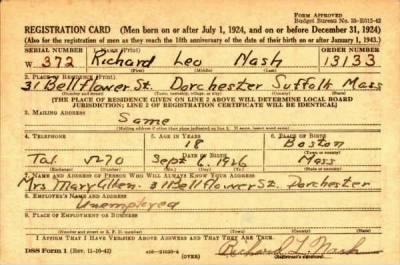 FORM APPROVED
Budget Bureau No. 33-R012-42
REGISTRATION CARD (Men born on or after July 1, 1924, and on or before December 31, 1924)
(Also for the registration of men as they reach the 18th anniversary of the date of their birth on or after January 1, 1943.)
SERIAL NUMBER 1. NAME (Print) ORDER NUMBER
W 372 Richard Leo Nash 13133
(First) (Middle) (Last)
2. PLACE OF RESIDENCE (Print)
31 Bellflower St. Dorchester Suffolk Mass
(Number and street) (Town, township, village, or city) (County) (State)
[THE PLACE OF RESIDENCE GIVEN ON LINE 2 ABOVE WILL DETERMINE LOCAL BOARD
JURISDICTION; LINE 2 OF REGISTRATION CERTIFICATE WILL BE IDENTICAL]
3. MAILING ADDRESS
Same
(Mailing address if other than place indicated on line 2. If same, insert word same)
4. TELEPHONE 5. AGE IN YEARS 6. PLACE OF BIRTH
18 Boston
DATE OF BIRTH (Town or county)
Tal Sept 6, 1926 Mass
(Exchange) (Number) (Mo.) (Day) (Yr.) (State or country)
7. NAME AND ADDRESS OF PERSON WHO WILL ALWAYS KNOW YOUR ADDRESS
Mrs Mary Allen. 31 Bellflower St. Dorchester
8. EMPLOYER'S NAME AND ADDRESS
Unemployed
9. PLACE OF EMPLOYMENT OR BUSINESS
(Number and street or R. F. D. number) (Town) (County) (State)
I AFFIRM THAT I HAVE VERIFIED ABOVE ANSWERS AND THAT THEY ARE TRUE.
DSS Form 1 (Rev. 11-16-42) (OVER) Richard L. Nash
(Registrant's signature)